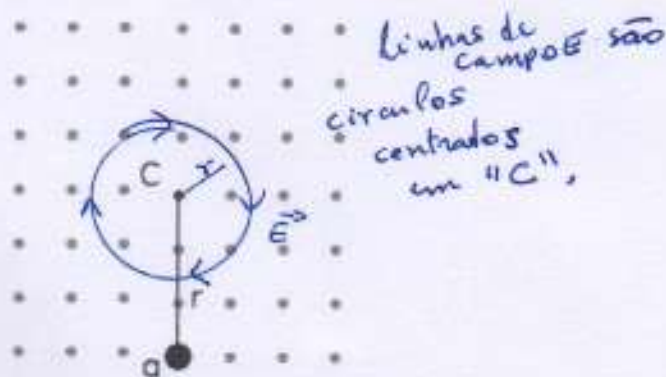 Linhas de
campo E são
círculos
centrados
em "C".
C
r
E
r
q